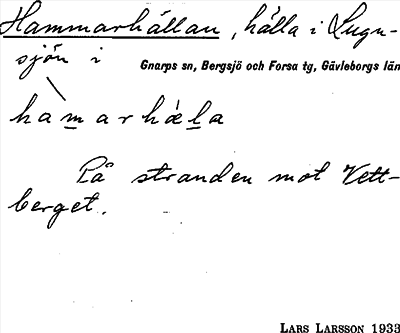 Hammarhällan, hälla i Lugn-
sjön i Gnarps sn, Bergsjö och Forsa tg, Gävleborgs län
hamarhæla
På stranden mot Vett-
berget.
LARS LARSSON 1933